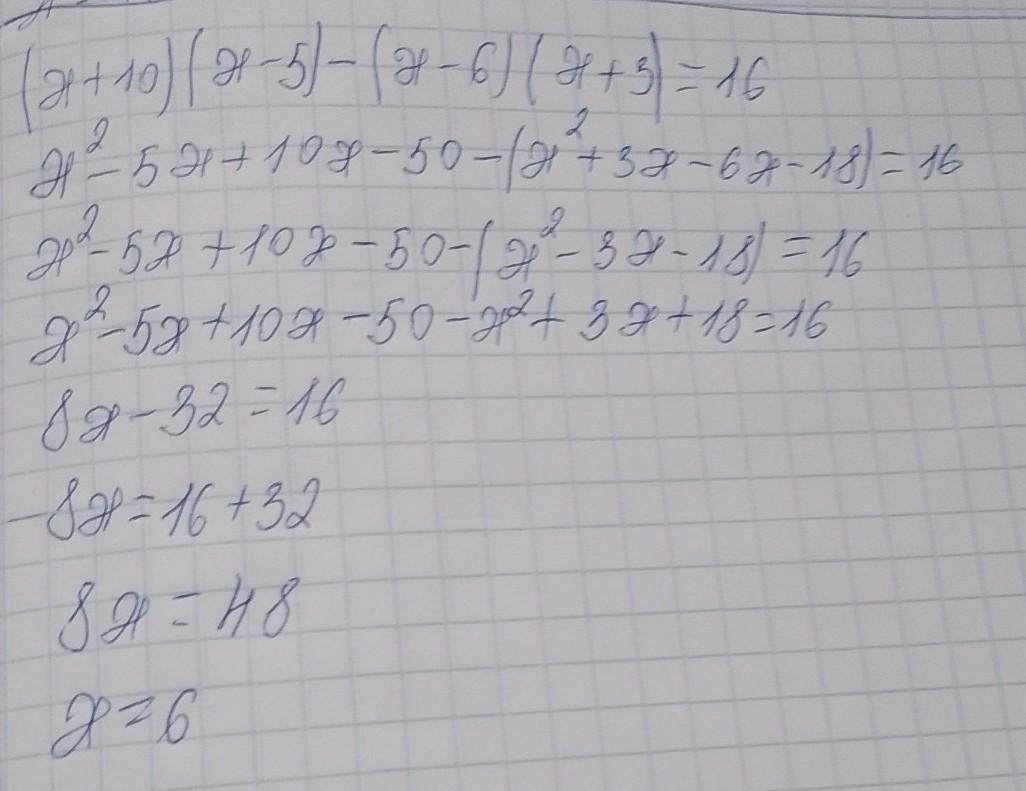 (x+10)(x-5)-(x-6)(x+3)=16
x²-5x+10x-50-(x²+3x-6x-18)=16
x²-5x+10x-50-(x²-3x-18)=16
x²-5x+10x-50-x²+3x+18=16
8x-32=16
-8x=16+32
8x=48
x=6